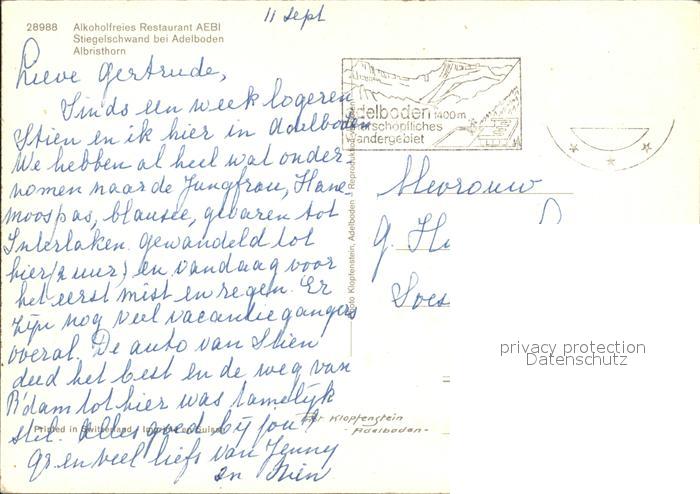 11 Sept
28988 Alkoholfreies Restaurant AEBI
Stiegelschwand bei Adelboden
Albristhorn
Lieve Gertrude,
Sinds een week logeren
Stien en ik hier in Adelboden
We hebben al heel wat onder-
nomen naar de Jungfrau, Hane-
moospas, blausee, gevaren tot
Interlaken. gewandeld tot
hier (2 uur) en vandaag voor
het eerst mist en regen. Er
zijn nog veel vacantiegangers
overal. De auto van Stien
deed het best en de weg van
R'dam tot hier was tamelijk
stil. Alles goed bij jou?
gr en veel liefs van Jenny
en Stien
Printed in Switzerland
Foto Klopfenstein, Adelboden
delboden 1400 m
erschöpfliches
andergebiet
Mevrouw
G. H
Soes
privacy protection
Datenschutz
Klopfenstein
- Adelboden -